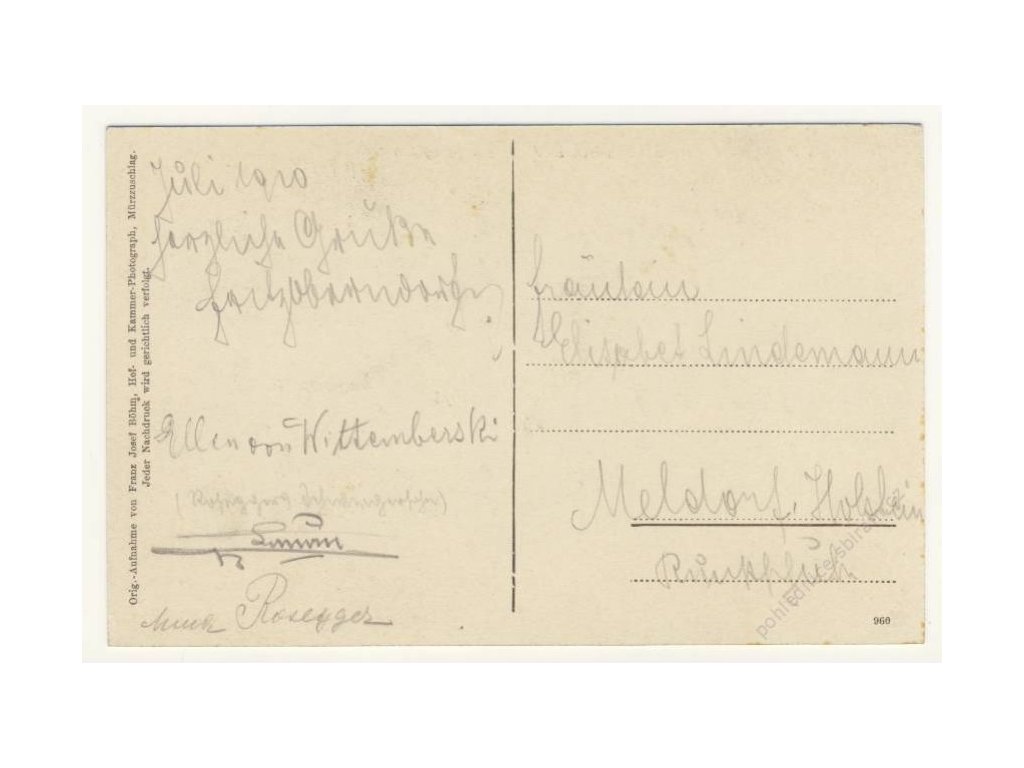 Orig.-Aufnahme von Franz Josef Böhm, Hof- und Kammer-Photograph, Mürzzuschlag.
Jeder Nachdruck wird gerichtlich verfolgt.
Juli 1910
Herzliche Grüße
Fritz Oberndorfer
Ellen von Wittemberski
(Roseggers
Anna Rosegger
Fräulein
Elisabet Lindemann
Meldorf, Holstein
960